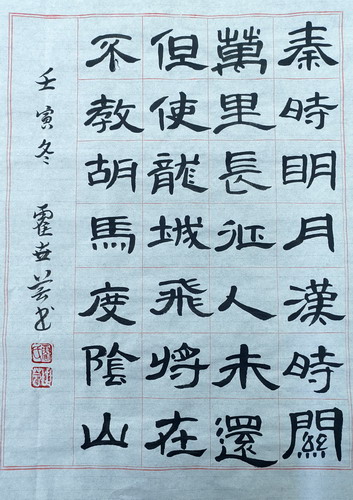 秦時明月漢時關
萬里長征人未還
但使龍城飛將在
不教胡馬度陰山
壬寅冬 霍世芸书